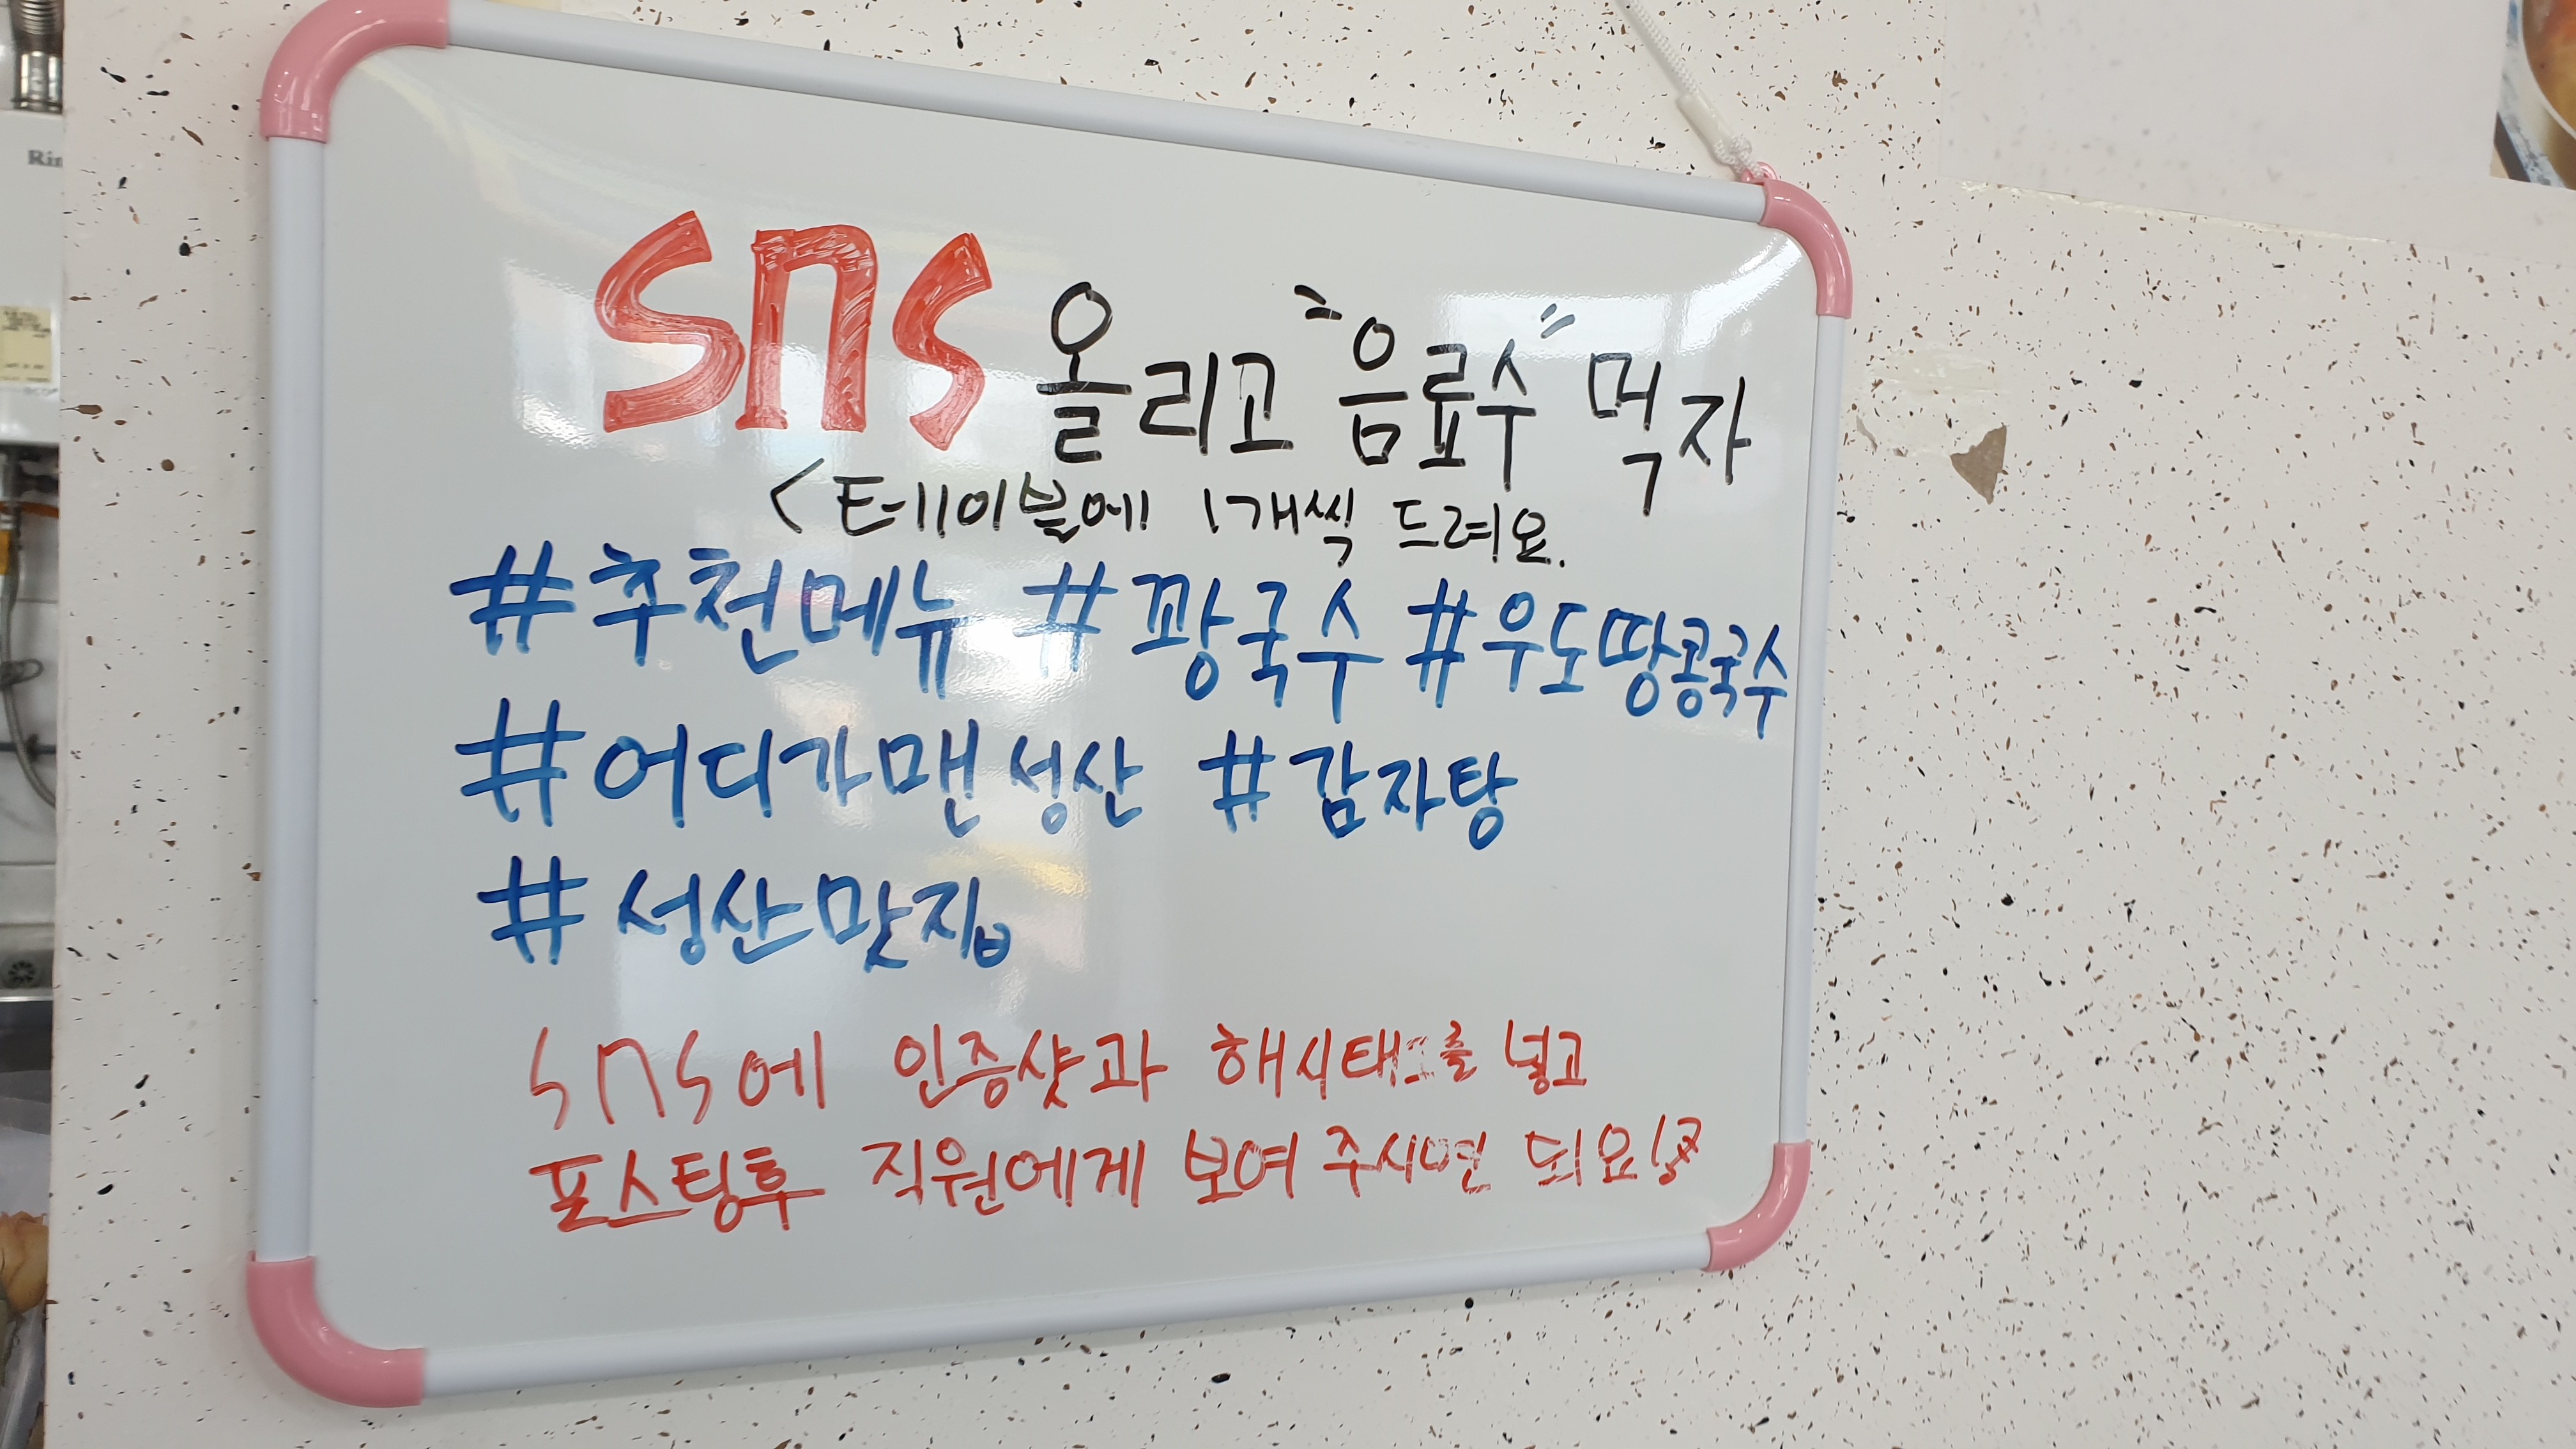 Rin
SNS 올리고 "음료수" 먹자
<테이블에 1개씩 드려요.
#추천메뉴 #꽝국수 #우도땅콩국수
#어디가맨성산 #감자탕
#성산맛집
SNS에 인증샷과 해시태그를 넣고
포스팅후 직원에게 보여 주시면 되요!